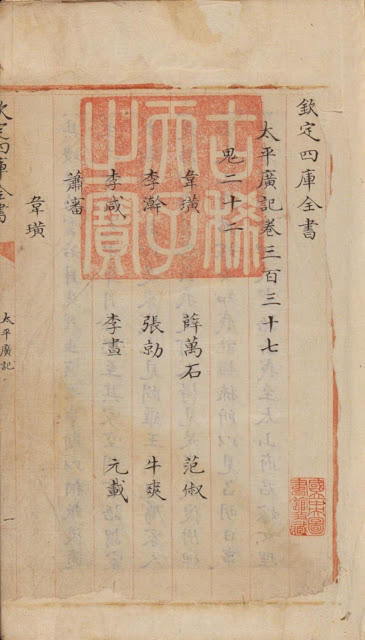 欽定四庫全書
太平廣記卷三百三十七
鬼二十二
韋璜 薛萬石 范俶
李澣 張勍 牛爽
李咸 李晝 元載
蕭審
韋璜
欽定四庫全書
太平廣記
一
古稀天子之寶